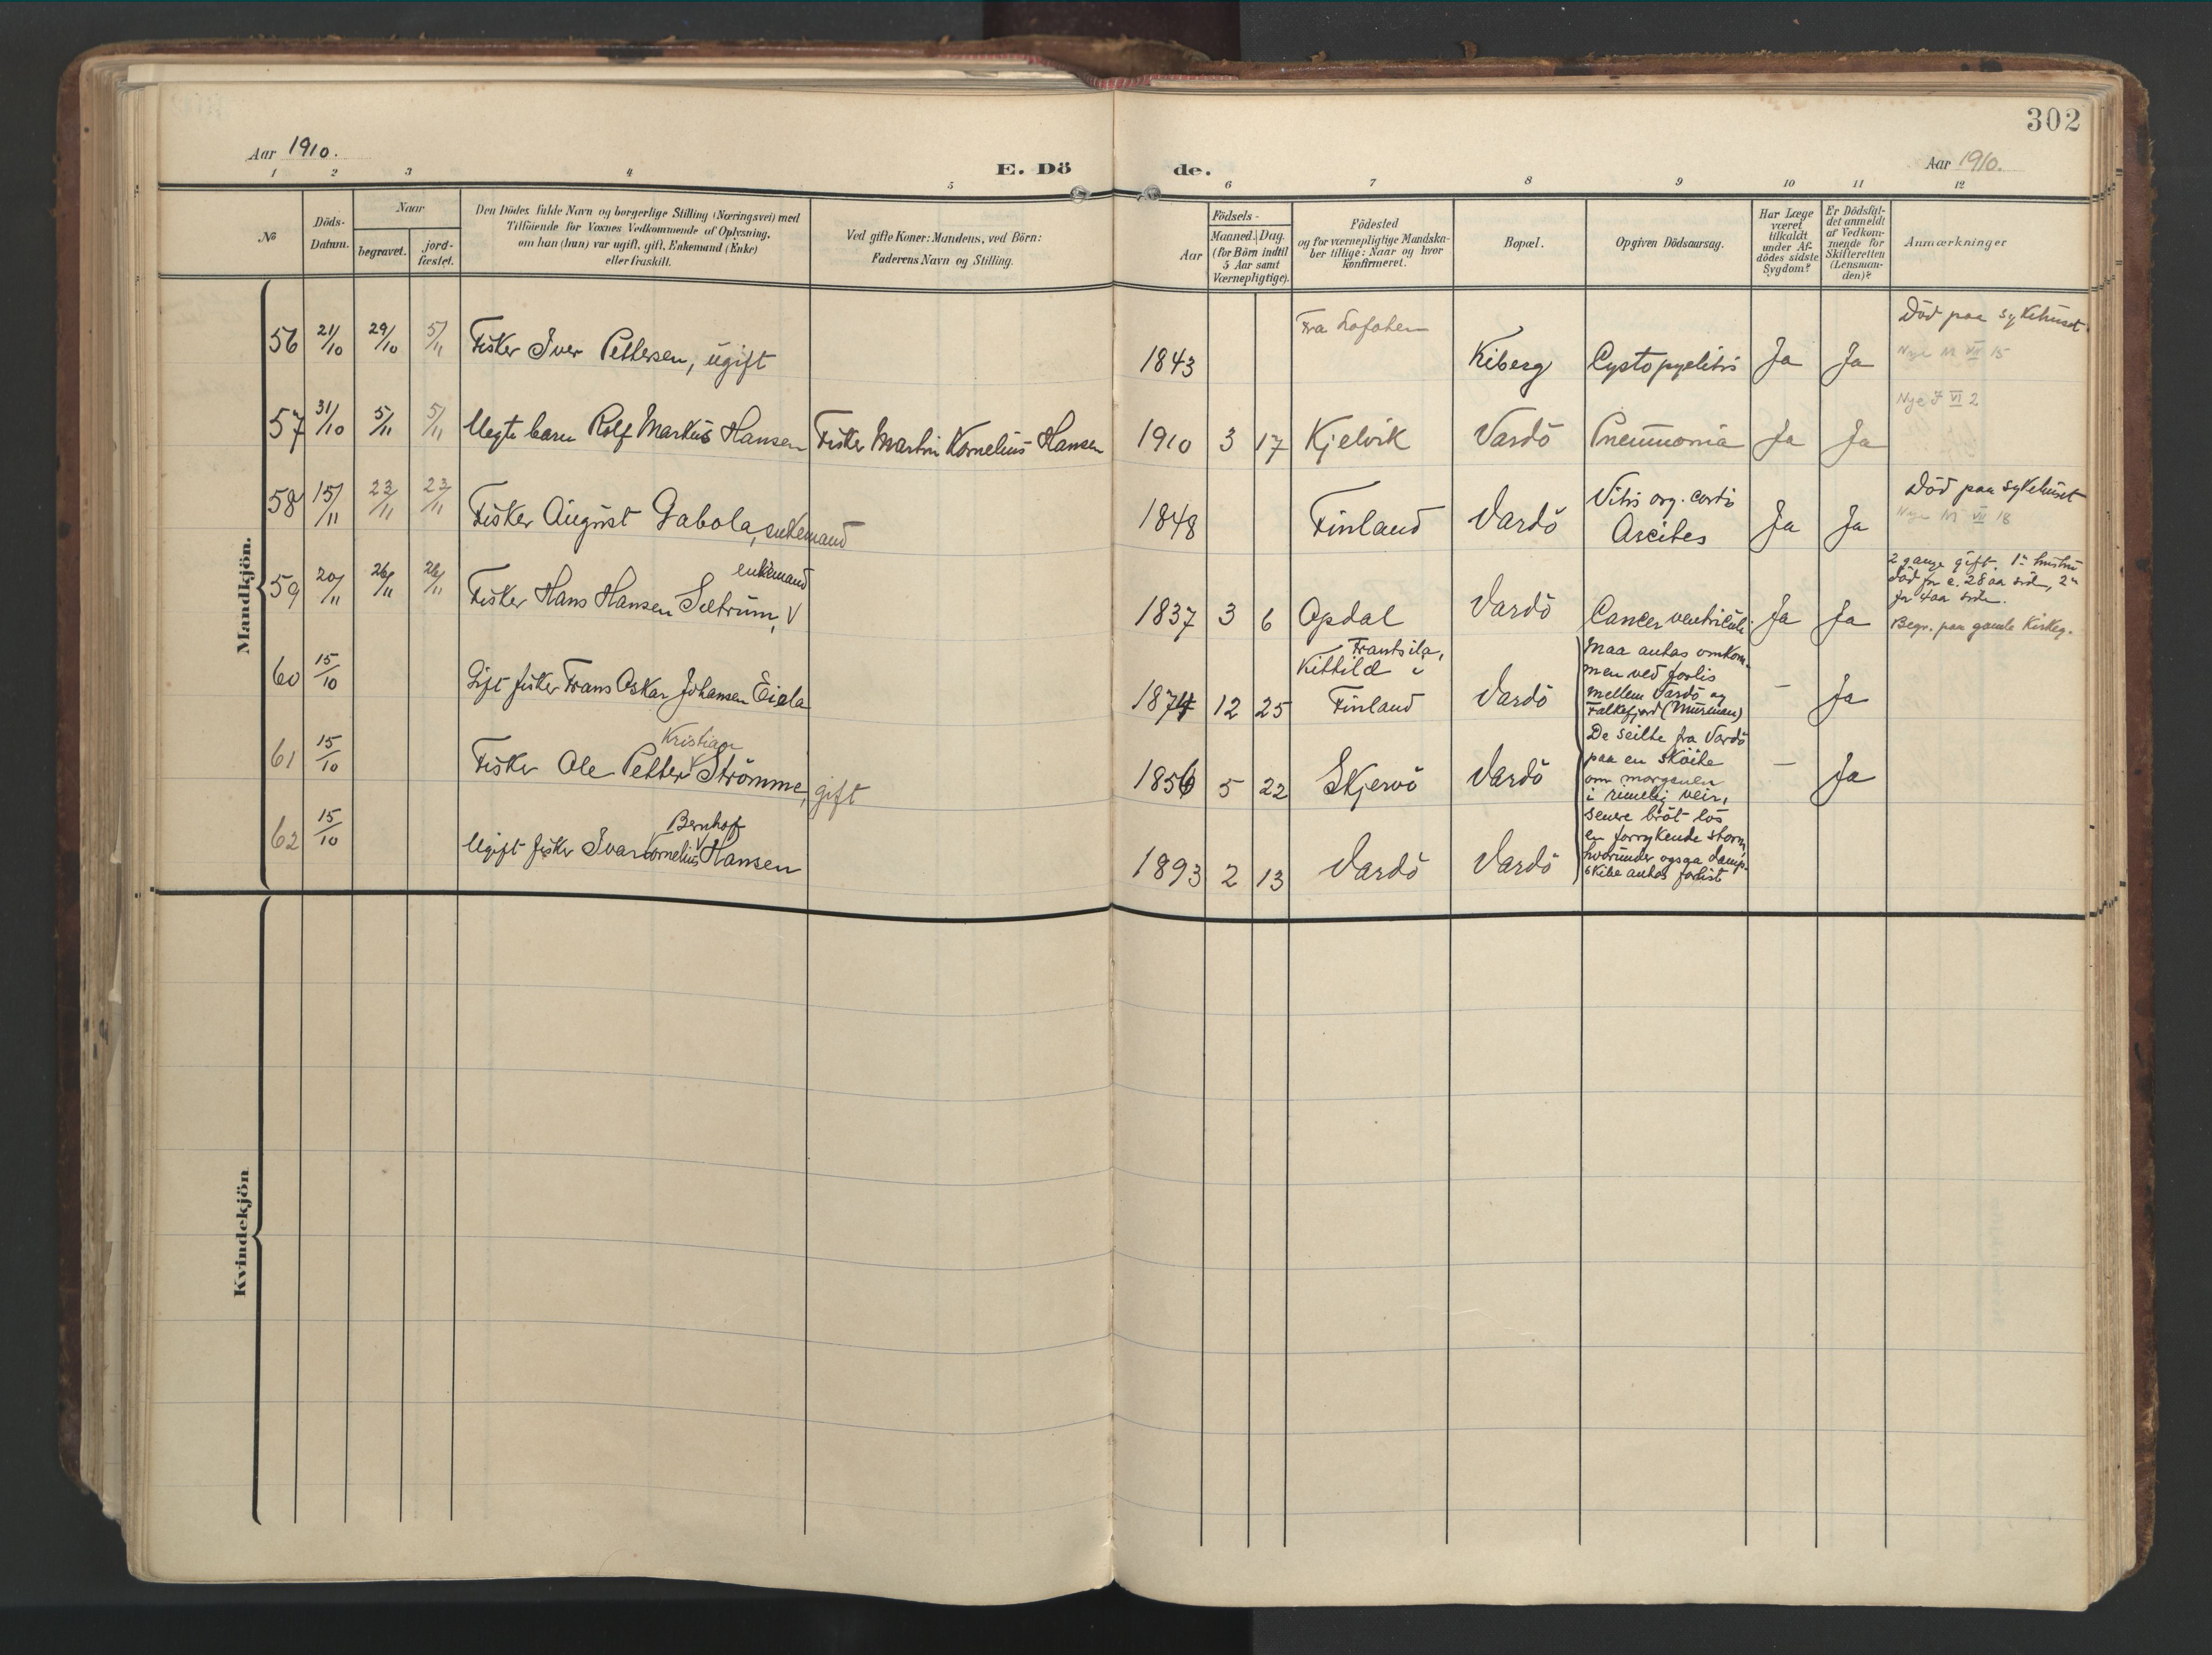 302
Aar 1910.
E. Dö de.
Aar 1910.
1 2 3 4 5 6 7 8 9 10 11 12
No
Döds-
Datum.
Naar
begravet.
jord-
fæstet.
Den Dödes fulde Navn og borgerlige Stilling (Næringsvei) med
Tilföiende for Voxnes Vedkommende af Oplysning,
om han (hun) var ugift, gift, Enkemand (Enke)
eller fraskilt.
Ved gifte Koner: Mandens, ved Börn:
Faderens Navn og Stilling.
Födsels-
Aar
Maaned. Dag.
(for Börn indtil
5 Aar samt
Værnepligtige).
Födested
og for værnepligtige Mandska-
ber tillige: Naar og hvor
konfirmeret.
Bopæl.
Opgiven Dödsaarsag.
Har Læge
været
tilkaldt
under Af-
dödes sidste
Sygdom?
Er Dödsfal-
det anmeldt
af Vedkom-
mende for
Skifteretten
(Lensman-
den)?
Anmærkninger
Mandkjön.
56 21/10 29/10 5/11 Fisker Iver Pettersen, ugift 1843 Fra Lofoten Kiberg Cystopyelitis Ja Ja Död paa sykehuset.
Nye M VII 15
57 31/10 5/11 5/11 Uegte barn Rolf Markus Hansen Fisker Martin Kornelius Hansen 1910 3 17 Kjelvik Vardö Pneumonia Ja Ja Nye F VI 2
58 15/11 23/11 23/11 Fisker August Gabola, enkemand 1848 Finland Vardö Vitis org. cordis
Ascites Ja Ja Död paa sykehuset
Nye M VII 18
59 20/11 26/11 26/11 Fisker Hans Hansen Seltrum, V enkemand 1837 3 6 Opdal Vardö Cancer ventriculi Ja Ja 2 gange gift. 1ste hustru
död for c. 28 aar siden, 2n
for 4 aar siden.
Begr. paa gamle Kirkeg.
60 15/10 Gift fisker Frans Oskar Johansen Eiala 1874 12 25 Frantsila,
Kittilä i
Finland Vardö - Ja
61 15/10 Fisker Ole Petter V Kristian Strömme, gift 1856 5 22 Skjervö Vardö - Ja
62 15/10 Ugift fisker Ivar Kornelius V Bernhof Hansen 1893 2 13 Vardö Vardö
Maa antas omkom-
men ved forlis
mellem Vardö og
Falkefjord (Murman)
De seilte fra Vardö
paa en sköite
om morgenen
i rimelig veir,
senere bröt lös
en forrykende storm,
hvorunder ogsaa damp-
skibe antas forlist
Kvindekjön